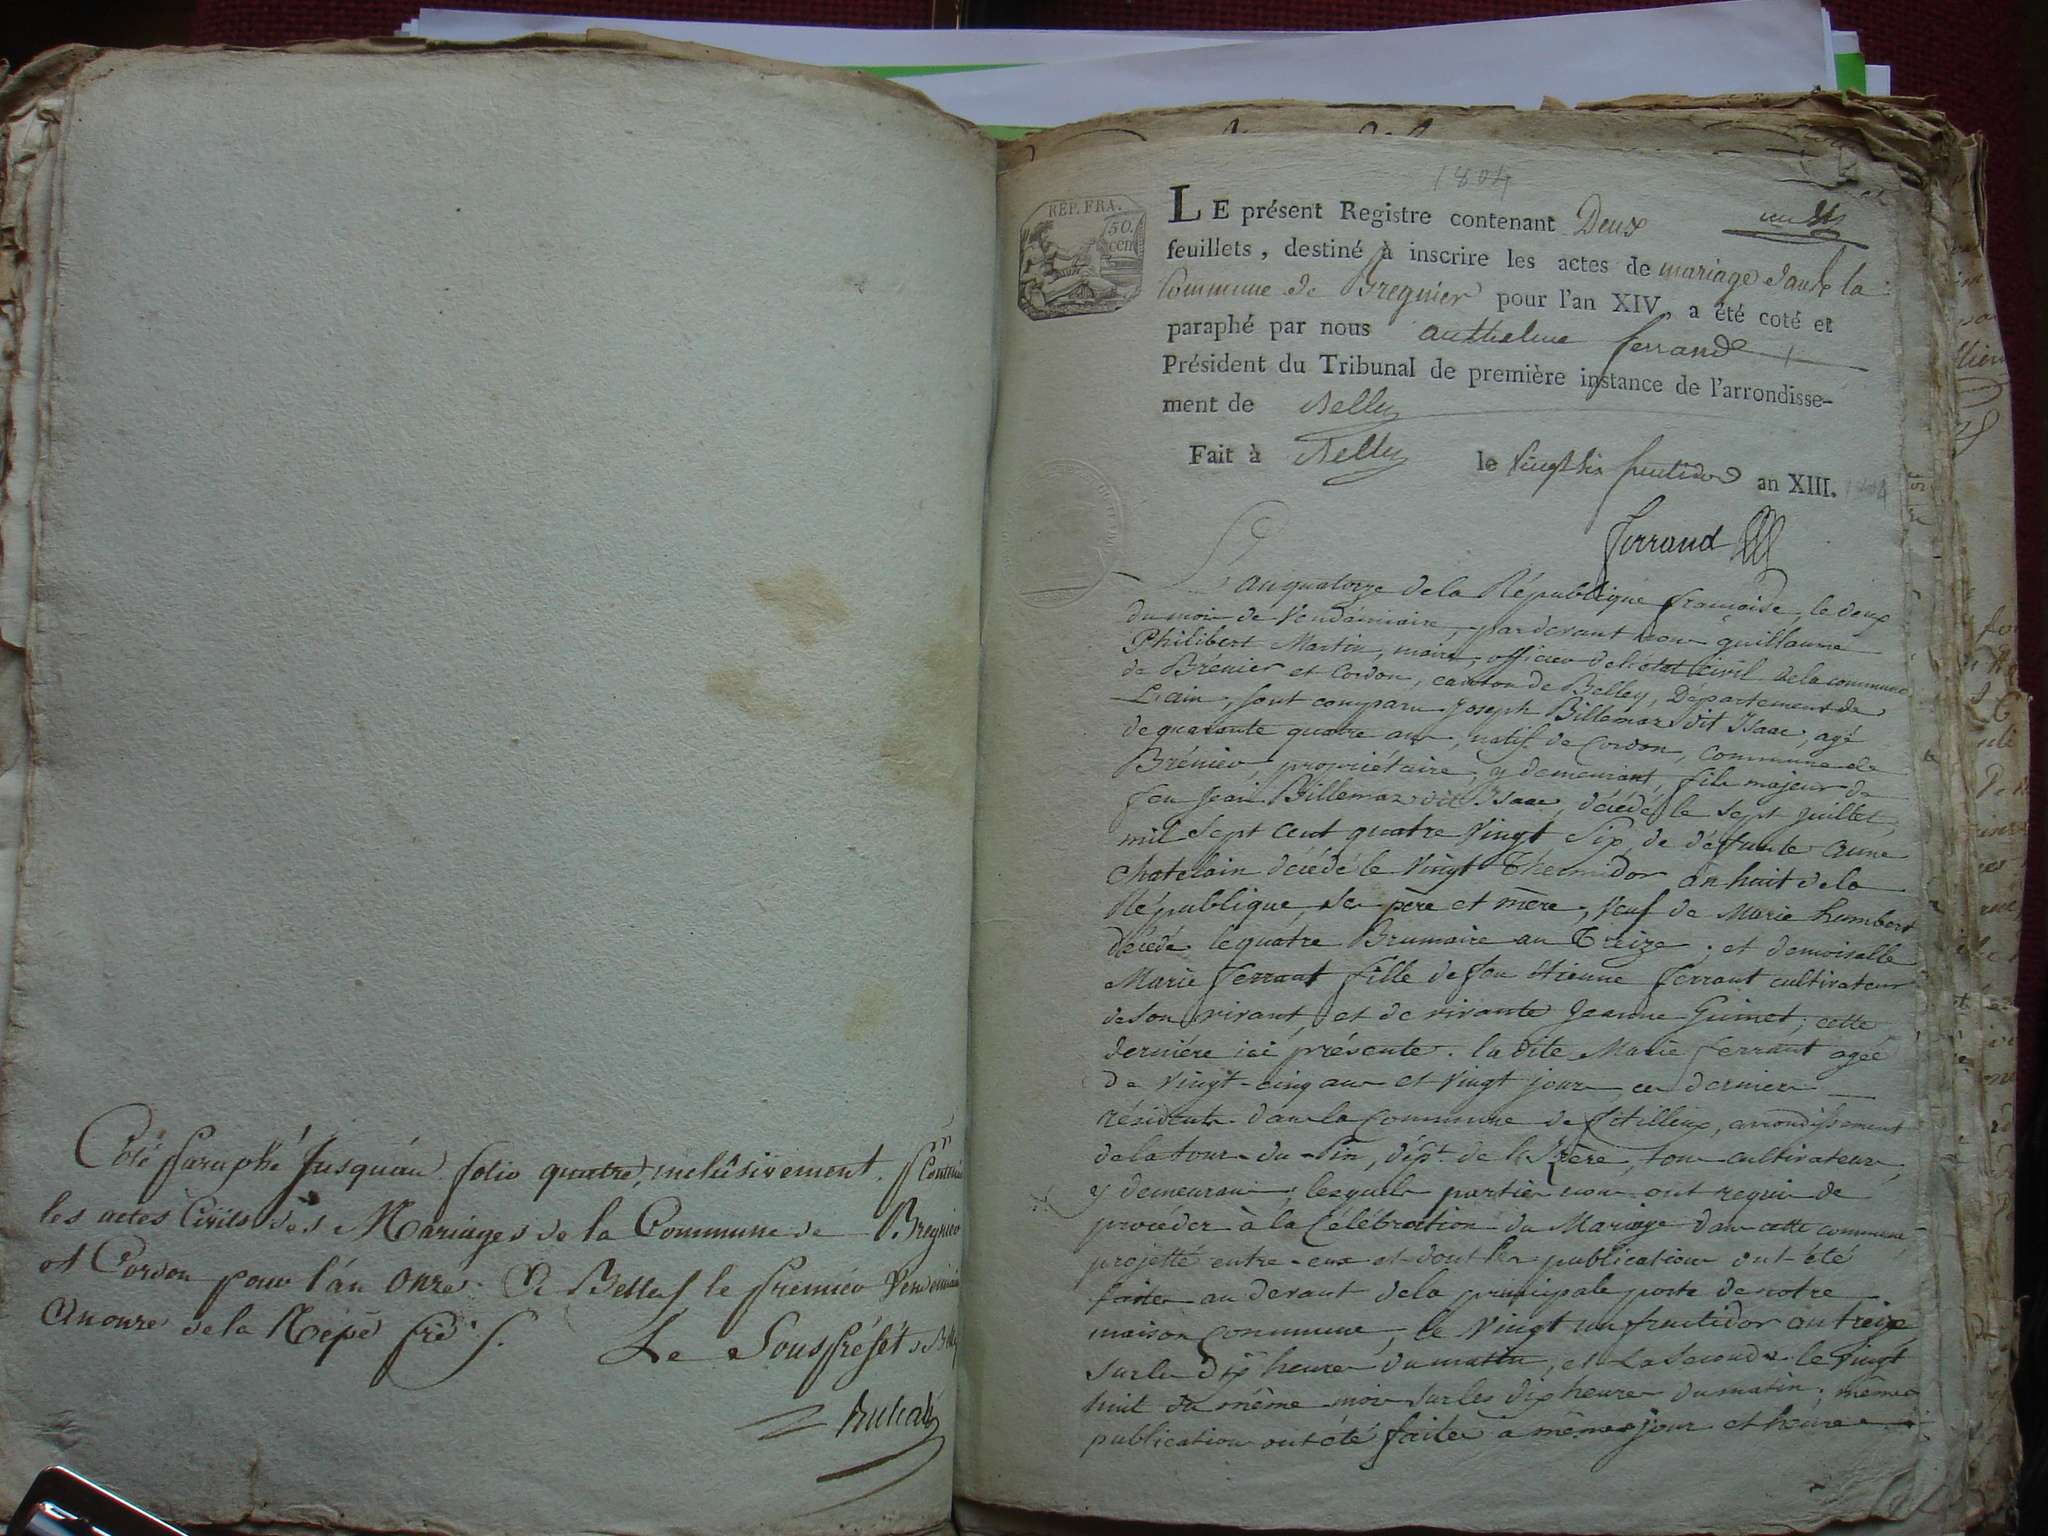 Coté Paraphé Jusqu'au folio quatre, inclusivement. Pr Contenir
les actes Civils des Mariages de la Commune de Bregnier
et Cordon pour l'an Onze. A Belley le Premier Vendemiaire
An onze de la Répe frse.
Le Sous Préfét
1804
REP. FRA.
50.
cen
LE présent Registre contenant Deux
feuillets, destiné à inscrire les actes de mariage dans la
Commune de Bregnier pour l'an XIV, a été coté et
paraphé par nous anthelme ferrand
Président du Tribunal de première instance de l'arrondisse-
ment de Belley
Fait à Belley le vingt six fructidor an XIII. 1804
ferrand
L'an quatorze de la République française, le deux
du mois de Vendémiaire, pardevant nous guillaume
Philibert Martin, maire, officier de l'état civil de la commune
de Brénier et Cordon, canton de Belley, Département de
L'ain, sont comparu Joseph Billemaz dit Isaac, agé
de quarante quatre ans, natif de Cordon, commune de
Brénier, propriétaire, y demeurant, fils majeur de
feu Jean Billemaz dit Isaac, décédé le sept Juillet,
mil sept cent quatre vingt six, de défunte anne
Chatelain décédé le vingt Thermidor an huit de la
République, ses père et mère, veuf de Marie humbert
décédé le quatre Brumaire an Treize; et demoiselle
Marie ferrant fille de feu étienne ferrant cultivateur
de son vivant, et de vivante Jeanne Guinet, cette
dernière ici présente. la dite Marie ferrant agée
de vingt-cinq ans et vingt jours, ces derniers
résidents dans la commune de arrondissement
de la tour-du-Pin, dépt de l'Isère, tous cultivateurs,
y demeurans; lesquels parties nous ont requis de
procéder à la Célébration du Mariage dans cette commune,
projetté entre-eux et dont les publications ont été
faites au devant de la principale porte de notre
maison Commune, le vingt un fructidor an treize
sur les dix heures du matin, et la seconde le vingt
huit du même mois sur les dix heures du matin; mêmes
publications ont été faites à mêmes jours et heures